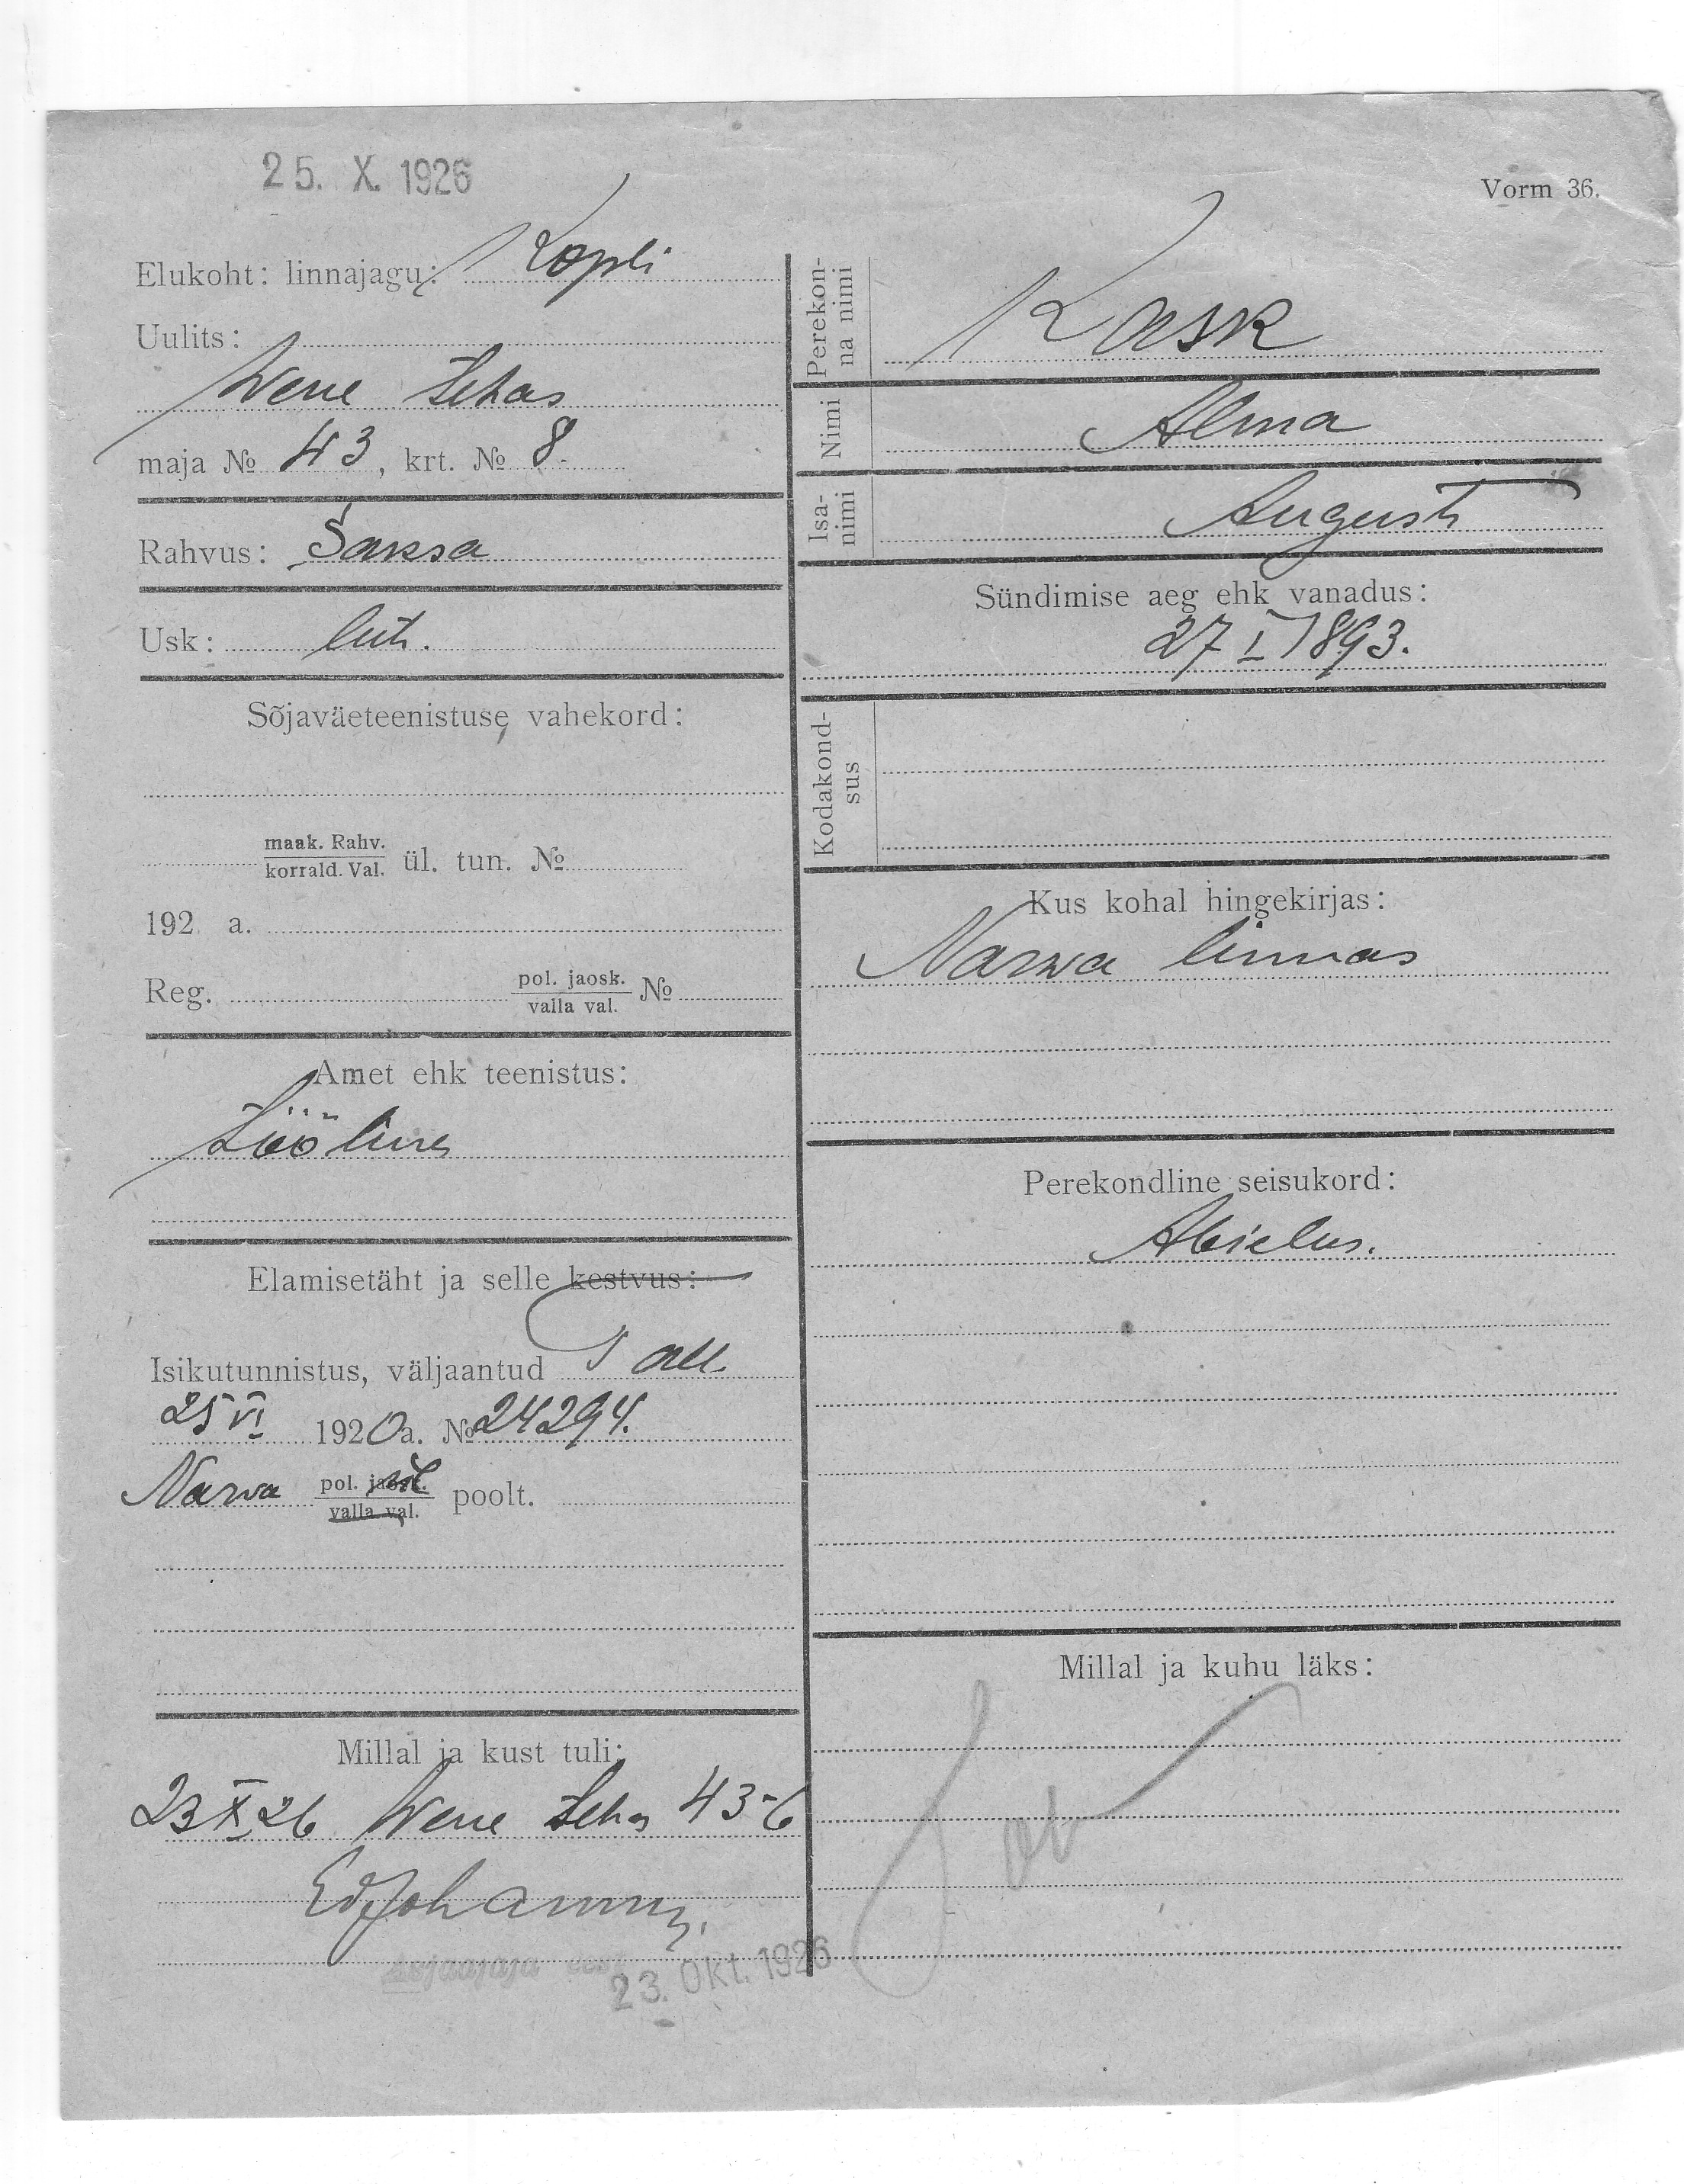 25. X. 1926
Vorm 36.
Elukoht: linnajagu: Kopli
Uulits:
Wene tehas
maja № 43, krt. № 8.
Rahvus: Saksa
Usk: lut.
Sõjaväeteenistuse vahekord:
maak. Rahv.
korrald. Val. ül. tun. №
192 a.
Reg. pol. jaosk. №
valla val.
Amet ehk teenistus:
Tööline
Elamisetäht ja selle kestvus:
Isikutunnistus, väljaantud
25 VI 1920 a. № 24294.
Narva pol. jaosk. poolt.
valla val.
Millal ja kust tuli:
23 X 26 Wene tehas 43-6
23. Okt. 1926
Perekonna nimi
Kask
Nimi
Alma
Isanimi
Augusti
Sündimise aeg ehk vanadus:
27 I 1893.
Kodakondsus
Kus kohal hingekirjas:
Narwa linnas
Perekondline seisukord:
Abielus.
Millal ja kuhu läks: